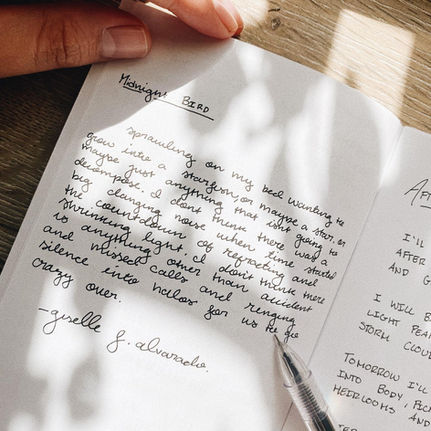 Midnight Bird
sprawling on my bed wanting to
grow into a starfern, or maybe a star, or
maybe just anything that isnt going to
decompose. I dont think there was a
big clanging noise when time started
the countdown of refracting and
shrinking light. I don't think there
is anything other than accident
and missed calls and ringing
silence into halos for us to go
crazy over.
-giselle j. alvarado.
I'LL
AFTER
AND G
I WILL B
LIGHT PEA
STORM CLOU
TOMORROW I'LL
INTO BODY, PIC
HEIRLOOMS AND